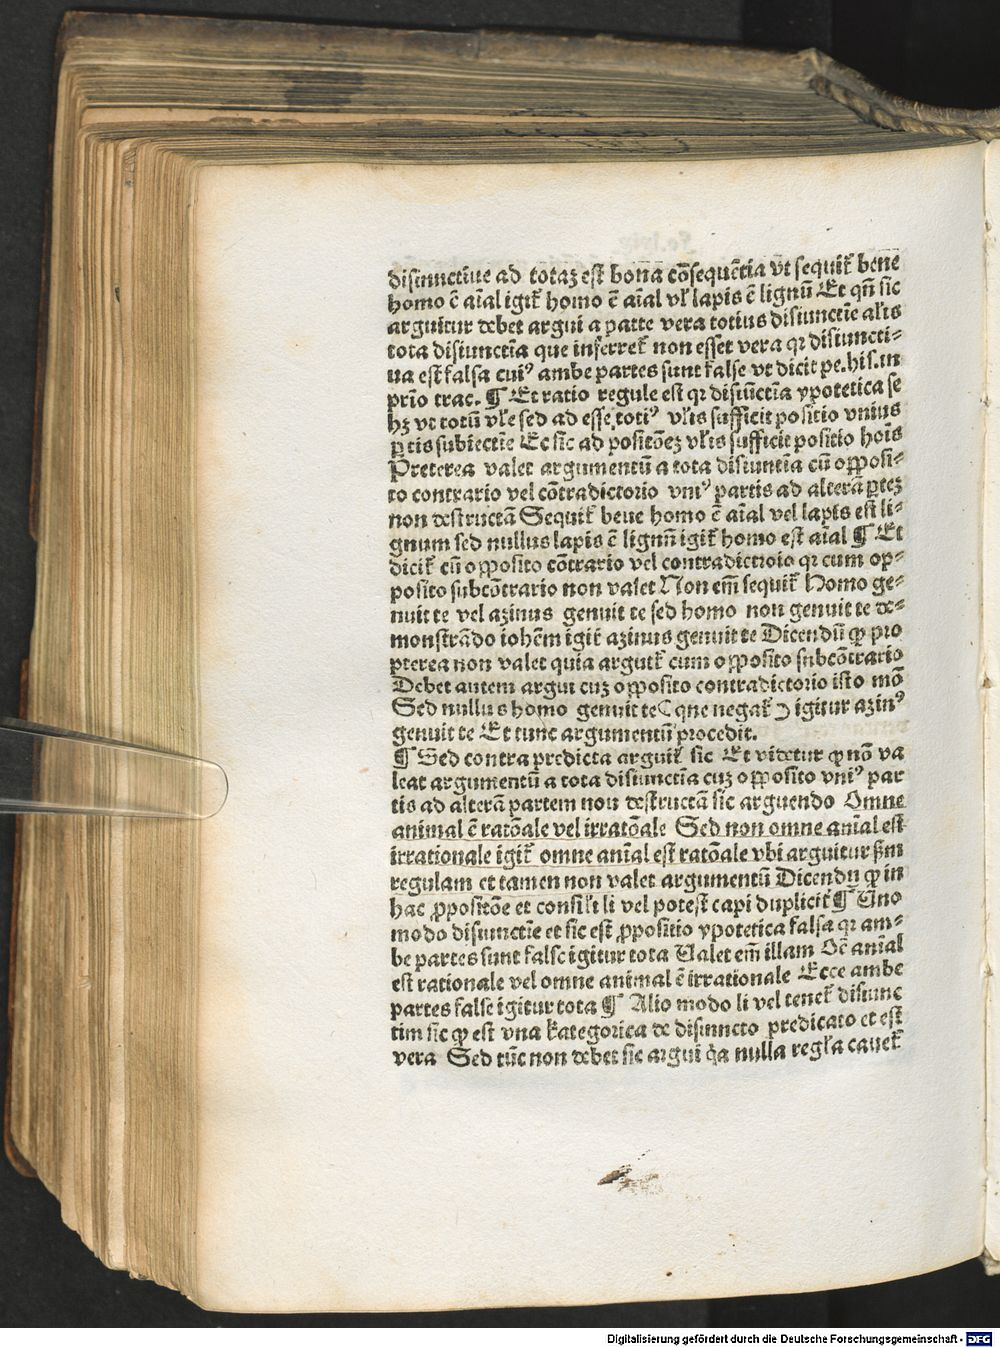 disiunctiue ad totaꝫ est bona cōsequētia vt sequit᷑ bene
homo ē aīal igit᷑ homo ē aīal vl᷑ lapis ē lignū Et qn̄ sic
arguitur debet argui a parte vera totius disiunctīe al᷑is
tota disiunctīa que inferret᷑ non esset vera qꝛ disiuncti⸗
ua est falsa cuiꝰ ambe partes sunt false vt dicit pe.his.in
prīo trac. ¶ Et ratio regule est qꝛ disiūctīa ypotetica se
hꝫ vt totū vl᷑e sed ad esse totiꝰ vl᷑is sufficit positio vnius
ꝑtis subiectīe Et sic ad positōeꝫ vl᷑is sufficit positio hoīs
Preterea valet argumentū a tota disiuntīa cū opposi⸗
to contrario vel cōtradictorio vniꝰ partis ad alterā ꝑteꝫ
non destructā Sequit᷑ bene homo ē aīal vel lapis est li⸗
gnum sed nullus lapis ē lignū igit᷑ homo est aīal ¶ Et
dicit᷑ cū opposito cōtrario vel contradictroio qꝛ cum op⸗
posito subcōtrario non valet Non em̄ sequit᷑ Homo ge⸗
nuit te vel azinus genuit te sed homo non genuit te de⸗
monstrādo iohēm igit᷑ azinus genuit te Dicendū ꝙ pro
pterea non valet quia arguit᷑ cum opposito subcōtrario
Debet autem argui cuꝫ opposito contradictorio isto mō
Sed nullus homo genuit te( que negat᷑ ) igitur azinꝰ
genuit te Et tunc argumentū procedit.
¶ Sed contra predicta arguit᷑ sic Et videtur ꝙ nō va
leat argumentū a tota disiunctīa cuꝫ opposito vniꝰ par
tis ad alterā partem non destructā sic arguendo Omne
animal ē ratōale vel irratōale Sed non omne anīal est
irrationale igit᷑ omne anīal est ratōale vbi arguitur ẜm
regulam et tamen non valet argumentū Dicendū ꝙ in
hac ꝓpositōe et consil᷑i li vel potest capi duplicit᷑ ¶ Uno
modo disiunctīe et sic est ꝓpositio ypotetica falsa qꝛ am⸗
be partes sunt false igitur tota Ualet em̄ illam Oē anīal
est rationale vel omne animal ē irrationale Ecce ambe
partes false igitur tota ¶ Alio modo li vel tenet᷑ disiunc
tim sic ꝙ est vna kategorica de disiuncto predicato et est
vera Sed tūc non debet sic argui q̇a nulla regl᷑a cauet᷑
Digitalisierung gefördert durch die Deutsche Forschungsgemeinschaft - DFG